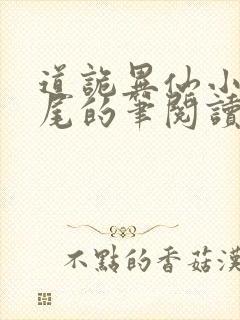 道詭異仙小
尾的筆閱讀
不點的香菇漢